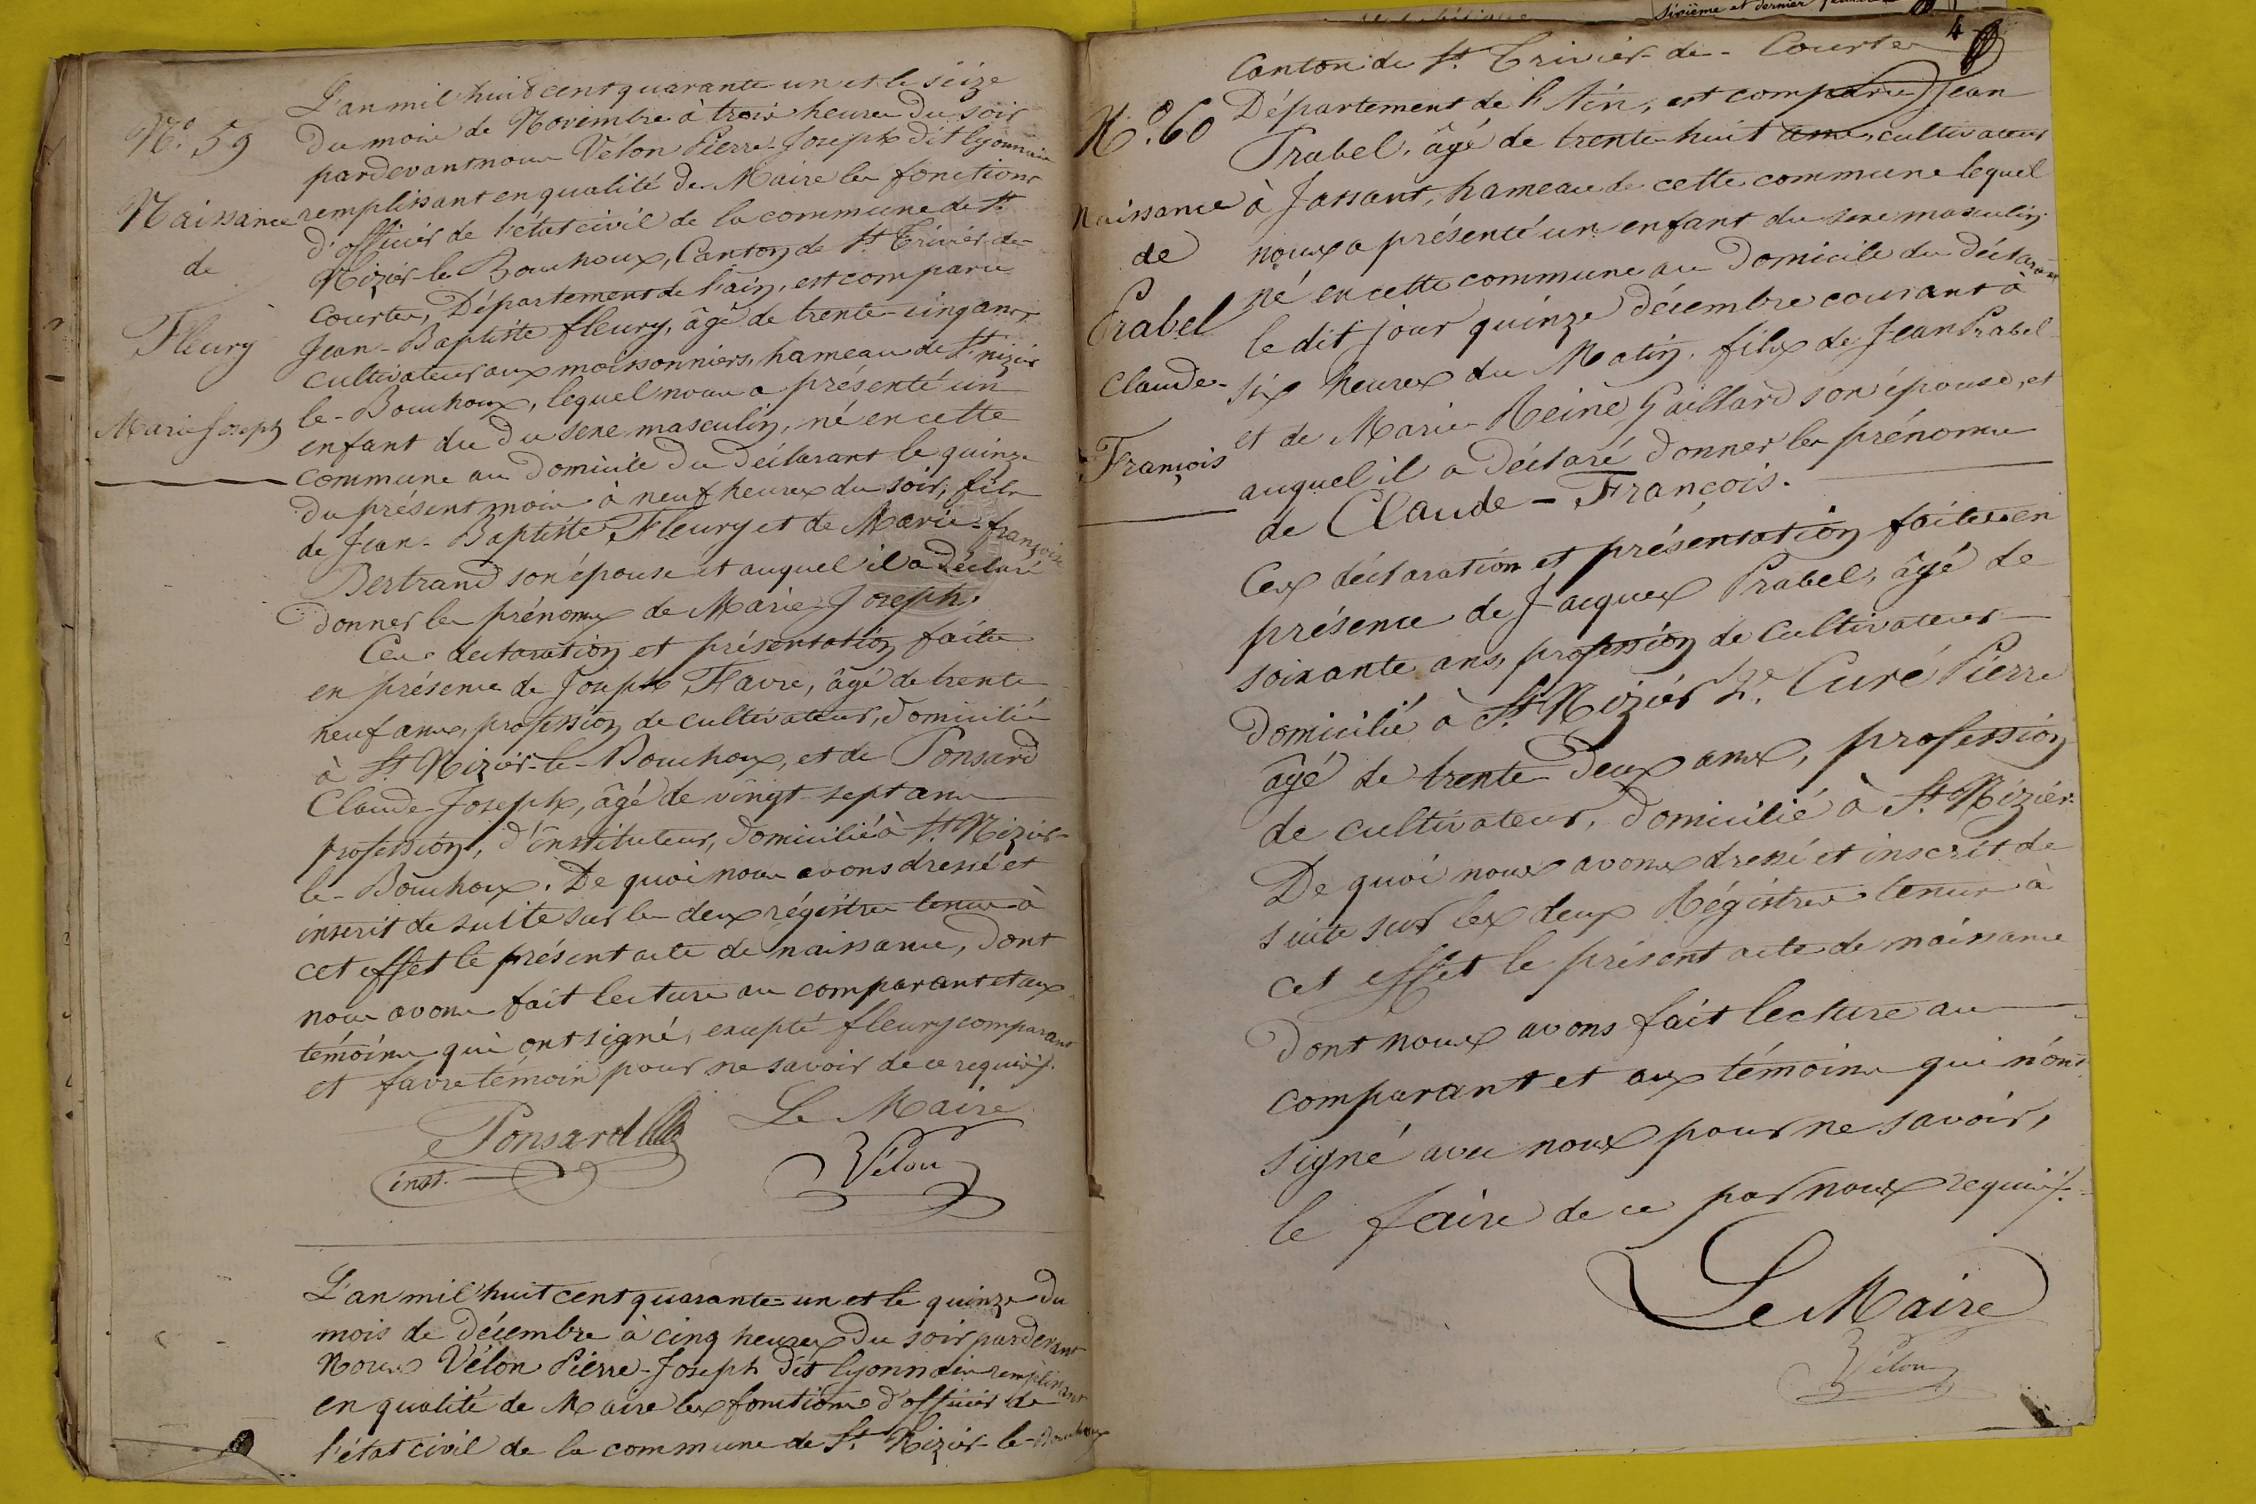 N.° 59
Naissance
de
Fleury
Marie Joseph
L'an mil huit cent quarante un et le seize
du mois de Novembre à trois heures du soir
pardevant nous Vélon Pierre-Joseph dit lyonnais
remplissant en qualité de Maire les fonctions
d'officier de l'état civil de la commune de St
Nizier-le Bouchoux, Canton de St Trivier-de-
Courtes, Département de l'ain, est comparu
Jean-Baptiste fleury, âgé de trente-cinq ans
cultivateur aux moissonniers, hameau de St nizier
le-Bouchoux, lequel nous a présenté un
enfant du du sexe masculin, né en cette
commune au domicile du déclarant le quinze
du présent mois à neuf heures du soir, fils
de Jean-Baptiste Fleury et de Marie-françoise
Bertrand son épouse et auquel il a déclaré
donner les prénoms de Marie-Joseph.
Ces déclaration et présentation faites
en présence de Joseph Favre, âgé de trente
neuf ans, profession de cultivateur, domicilié
à St Nizier-le-Bouchoux, et de Ponsard
Claude-Joseph, âgé de vingt-sept ans
profession, d'instituteur, domicilié à St Nizier-
le-Bouchoux. De quoi nous avons dressé et
inscrit de suite sur les deux régistres tenus à
cet effet le présent acte de naissance, dont
nous avons fait lecture au comparant et aux
témoins qui ont signé, excepté fleury comparant
et favre témoin pour ne savoir de ce requis.
Le Maire
Ponsard
inst.
Vélon
L'an mil huit cent quarante-un et le quinze du
mois de décembre à cinq heures du soir pardevant
Nous Vélon Pierre-Joseph dit lyonnais remplissant
en qualité de Maire les fonctions d'officier de
l'état civil de la commune de St Nizier-le-Bouchoux
sixième et dernier
4
N.° 60
Naissance
de
Prabel
Claude-
François
Canton de St. Trivier-de-Courtes
Département de l'Ain, est comparu Jean
Prabel, âgé de trente-huit ans, cultivateur
à Jassant, hameau de cette commune lequel
nous a présenté un enfant du sexe masculin
né en cette commune au domicile du déclarant
le dit jour quinze décembre courant à
six heures du Matin, fils de Jean Prabel
et de Marie-Reine Gaillard son épouse, et
auquel il a déclaré donner les prénoms
de Claude-François.
Ces déclaration et présentation faites en
présence de Jacques Prabel, âgé de
soixante ans, profession de cultivateur
domicilié à St. Nizier 2.° Curé Pierre
âgé de trente deux ans, profession
de cultivateur, domicilié à St. Nizier.
De quoi nous avons dressé et inscrit de
suite sur les deux Régistres tenus à
cet effet le présent acte de naissance
dont nous avons fait lecture au
comparant et aux témoins qui n'ont
signé avec nous pour ne savoir,
le faire de ce par nous requis.
Le Maire
Vélon